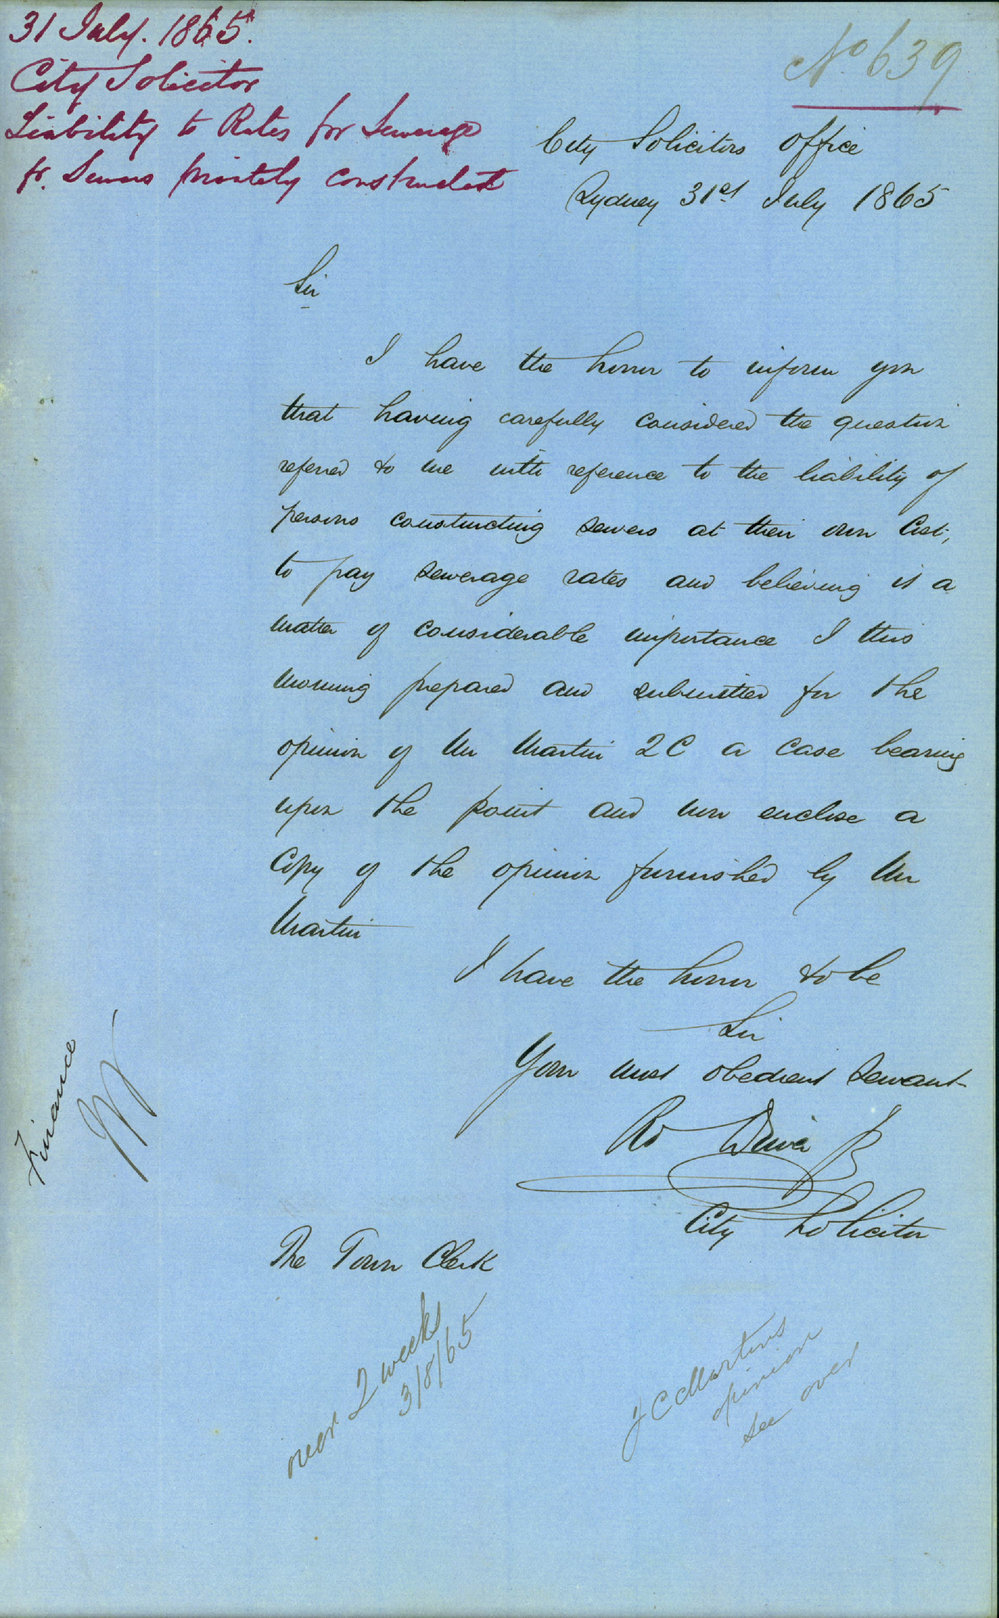 31 July. 1865.
City Solicitor
Liability to Rates for Sewerage
fr. Sewers privately constructed
No 639
City Solicitors Office
Sydney 31st July 1865
Sir
I have the honor to inform you
that having carefully considered the question
referred to me with reference to the liability of
persons constructing sewers at their own Cost,
to pay sewerage rates and believing it a
matter of considerable importance I this
morning prepared and submitted for the
opinion of Mr Martin QC a case bearing
upon the point and now enclose a
Copy of the opinion furnished by Mr
Martin
I have the honor to be
Sir
Your most obedient Servant
Rd Driver Jr
City Solicitor
The Town Clerk
Finance
over 2 weeks
3/8/65
Martins
opinion
see over